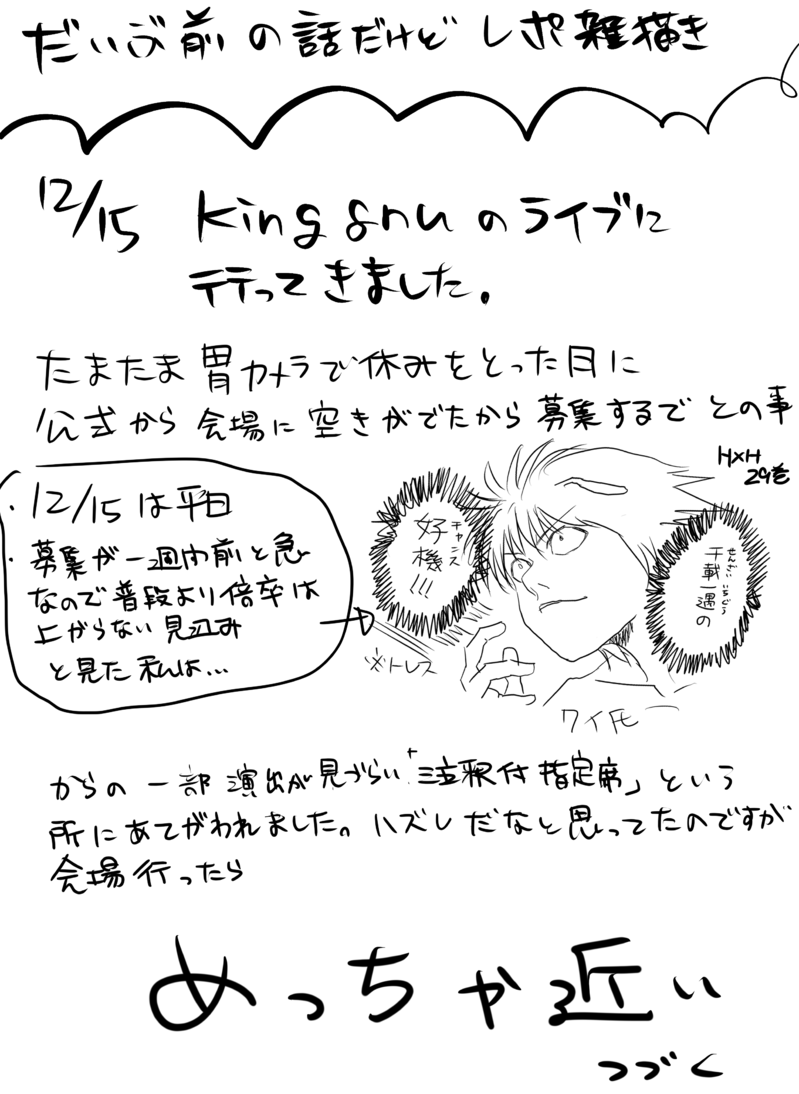 だいぶ前の話だけどレポ雑描き
12/15 King gnuのライブに
行ってきました。
たまたま胃カメラで休みをとった日に
公式から会場に空きがでたから募集するでとの事
HxH
29巻
・12/15は平日
・募集が一週内前と急
なので普段より倍率は
上がらない見込み
と見た私は…
せんざいいちぐう
千載一遇の
チャンス
好機!!!
※トレス
ワイ氏
からの一部演出が見づらい「注釈付指定席」という
所にあてがわれました。ハズレだなと思ってたのですが
会場行ったら
めっちゃ近い
つづく